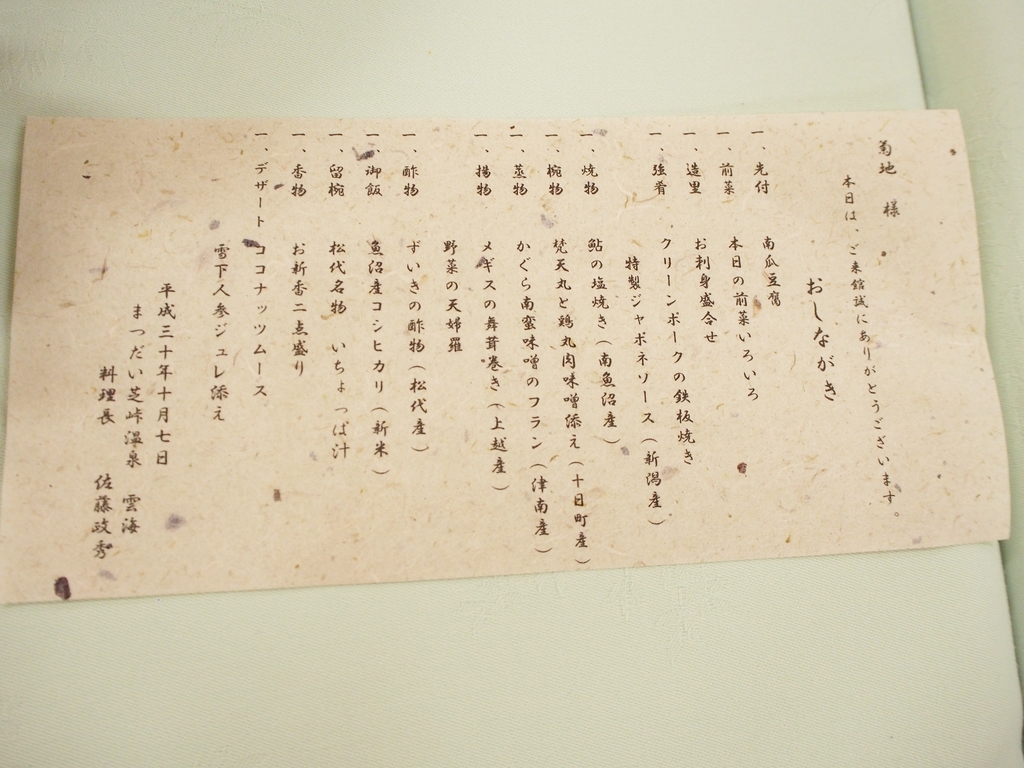 菊地 様
本日は、ご来館誠にありがとうございます。
おしながき
一、先付 南瓜豆腐
一、前菜 本日の前菜いろいろ
一、造里 お刺身盛合せ
一、強肴 クリーンポークの鉄板焼き
特製ジャポネソース(新潟産)
一、焼物 鮎の塩焼き(南魚沼産)
一、椀物 梵天丸と鶏丸肉味噌添え(十日町産)
一、蒸物 かぐら南蛮味噌のフラン(津南産)
一、揚物 メギスの舞茸巻き(上越産)
野菜の天婦羅
一、酢物 ずいきの酢物(松代産)
一、御飯 魚沼産コシヒカリ(新米)
一、留椀 松代名物 いちょっぱ汁
一、香物 お新香二点盛り
一、デザート ココナッツムース
雪下人参ジュレ添え
平成三十年十月七日
まつだい芝峠温泉 雲海
料理長 佐藤政秀